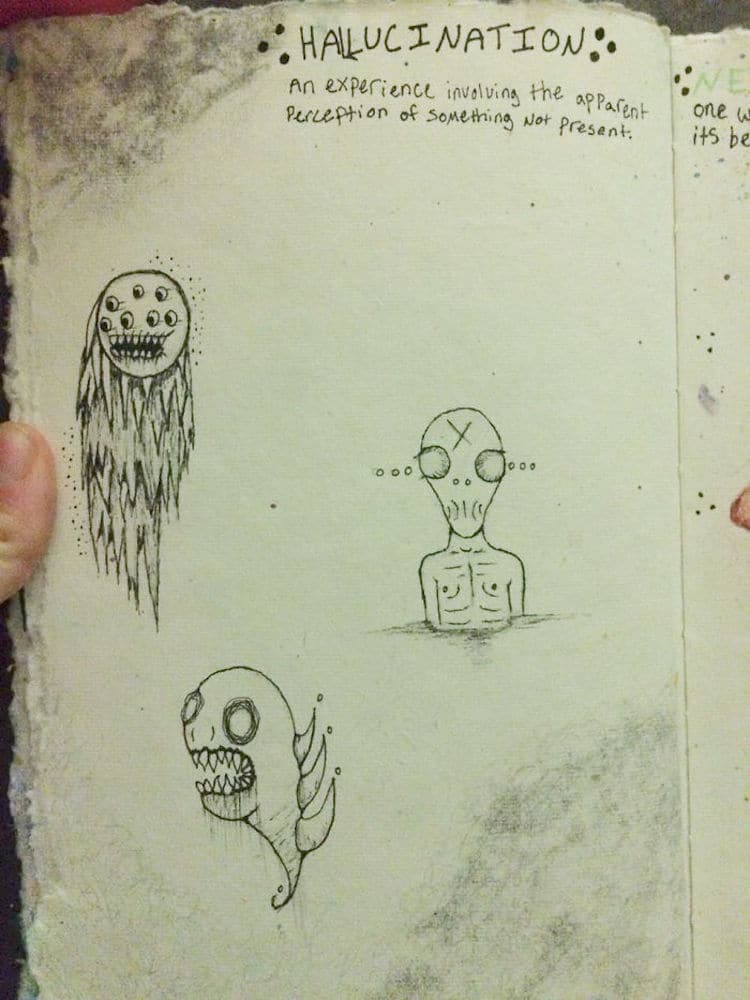 HALLUCINATION
An experience involving the apparent
Perception of something Not present.
NE
one w
its be